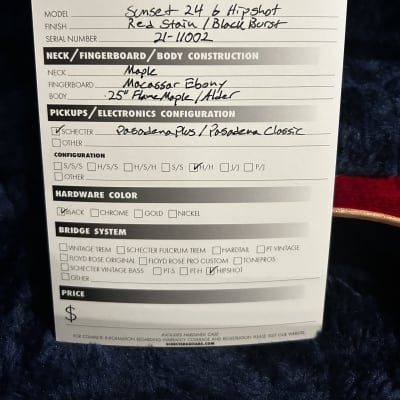 MODEL Sunset 24 6 Hipshot
FINISH Red Stain/Black Burst
SERIAL NUMBER 21-11002
NECK/FINGERBOARD/BODY CONSTRUCTION
NECK Maple
FINGERBOARD Macassar Ebony
BODY .25" Flame Maple/Alder
PICKUPS/ELECTRONICS CONFIGURATION
SCHECTER Pasadena Plus/Pasadena Classic
OTHER
CONFIGURATION
S/S/S H/S/S H/S/H S/S H/H J/J P/J
OTHER
HARDWARE COLOR
BLACK CHROME GOLD NICKEL
BRIDGE SYSTEM
VINTAGE TREM SCHECTER FULCRUM TREM HARDTAIL PT VINTAGE
FLOYD ROSE ORIGINAL FLOYD ROSE PRO CUSTOM TONEPROS
SCHECTER VINTAGE BASS PT-S PT-H HIPSHOT
OTHER
PRICE
$
INCLUDES HARDSHELL CASE
FOR COMPLETE INFORMATION REGARDING WARRANTY COVERAGE AND REGISTRATION PLEASE VISIT OUR WEBSITE.
SCHECTERGUITARS.COM